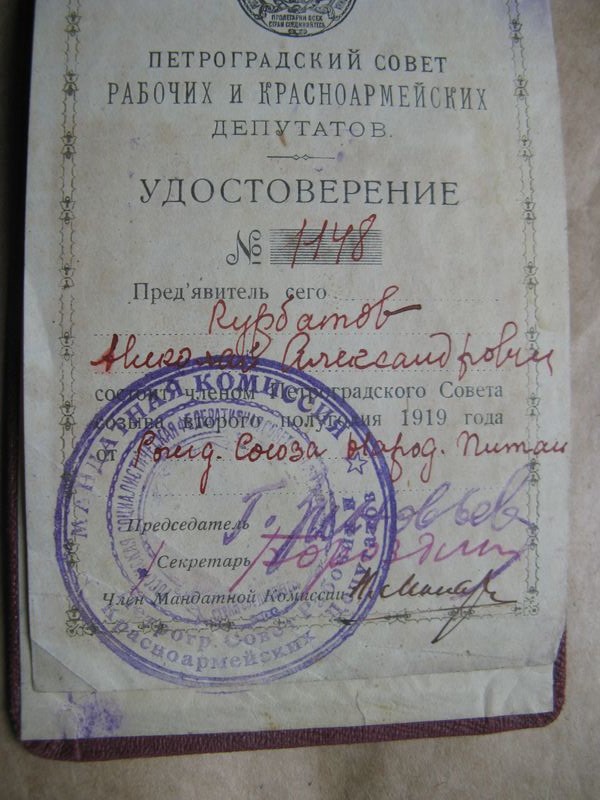 ПРОЛЕТАРИИ ВСЕХ
СТРАН СОЕДИНЯЙТЕСЬ
ПЕТРОГРАДСКИЙ СОВЕТ
РАБОЧИХ И КРАСНОАРМЕЙСКИХ
ДЕПУТАТОВ.
УДОСТОВЕРЕНИЕ
№ 1148
Пред'явитель сего
Курбатов
Николай Александрович
состоит членом Петроградского Совета
созыва второго полугодия 1919 года
от Союза Народ. Питан
Председатель Г. Зиновьев
Секретарь
Член Мандатной Комиссии
МАНДАТНАЯ КОМИССИЯ
Петр. Совета
Красноармейских